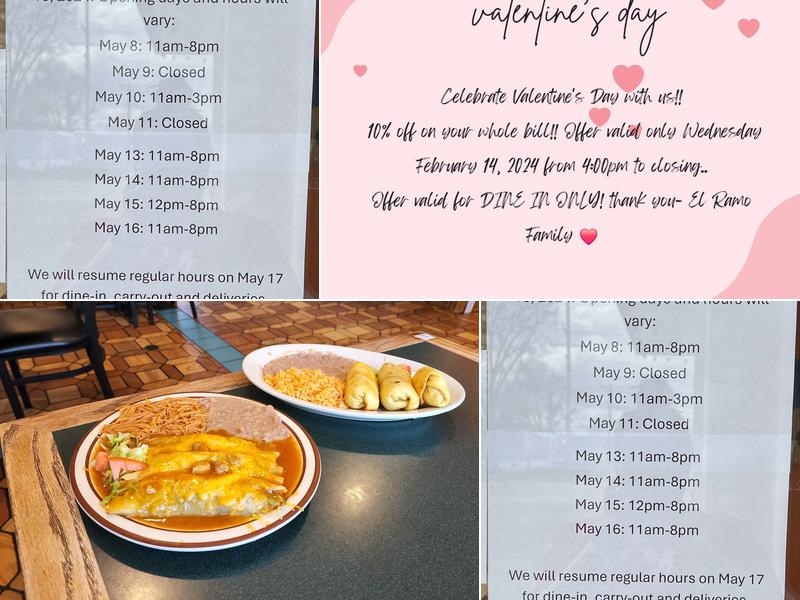 2024. Opening days and hours will
vary:
May 8: 11am-8pm
May 9: Closed
May 10: 11am-3pm
May 11: Closed
May 13: 11am-8pm
May 14: 11am-8pm
May 15: 12pm-8pm
May 16: 11am-8pm
We will resume regular hours on May 17
for dine-in, carry-out and deliveries.
valentine's day
Celebrate Valentine's Day with us!!
10% off on your whole bill!! Offer valid only Wednesday
February 14, 2024 from 4:00pm to closing..
Offer valid for DINE IN ONLY! thank you- El Ramo
Family ❤️
2024. Opening days and hours will
vary:
May 8: 11am-8pm
May 9: Closed
May 10: 11am-3pm
May 11: Closed
May 13: 11am-8pm
May 14: 11am-8pm
May 15: 12pm-8pm
May 16: 11am-8pm
We will resume regular hours on May 17
for dine-in, carry-out and deliveries.